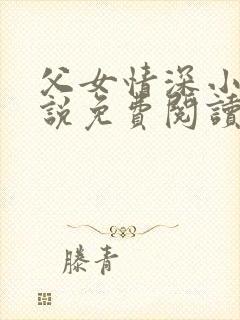 父女情深小
說免費閱讀
滕青